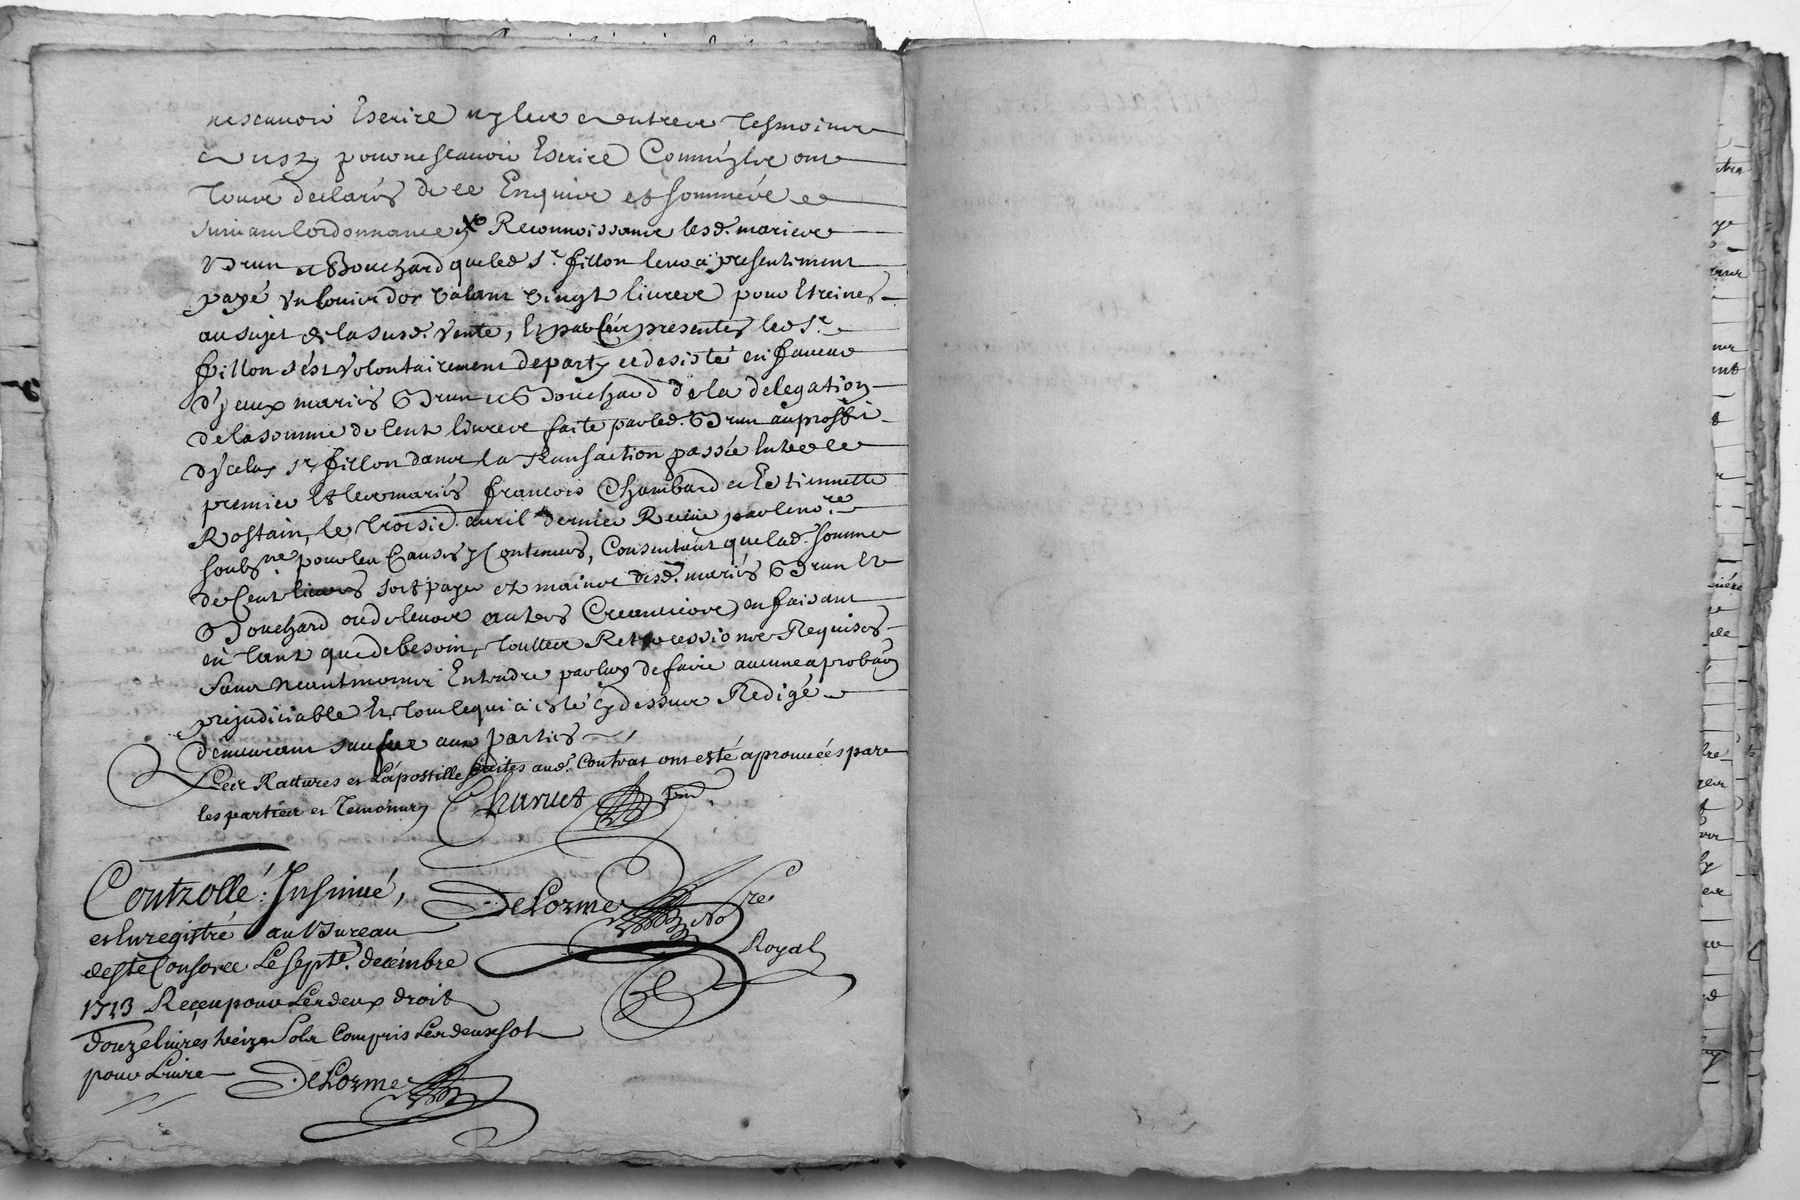 nescavoir Escrire ny les dentreve Tesmoins
pour ne scavoir Escrire Comm'ylz ont
Tous declarés de ce Enquire et sommés
suivant lordonnance Reconnoissant lesd. mariers
Brun et Bouchard queled Sr. fillon leur a presentement
payé Un louier dor valant vingt livres pour Etreines
au sujet de la susd. vente, Et par ces presentes led Sr.
fillon s'est volontairement departy et desisté en faveur
d'yceux mariés Brun et Bouchard de la delegation
de la somme de Cent livres faite par led. Brun au proffit
d'yceluy Sr. fillon dans la transaction passée Entre le
premier Et les mariés françois Chambard et Etiennette
Rostain, le troisie. avril dernier Receue par le nore.
soubsne. pour les Causes y Contenues, Consentant que lad. somme
de Cent livres soit payée ez mains desd. mariés Brun Et
Bouchard ou de leurs autres Creanciers, en faisant
en tant que de besoin, touttes Retrocessions Requises
sans neantmoins Entendre par luy de faire aucune aprobaon
prejudiciable Et tout ce qui a esté cy dessus Redigé
demeurant sauf aux parties
Les Ratures et L'apostille faites aud. Contrat ont esté aprouvées par
les parties et Temoins Charvet pnt.
Controllé: Insinué, DeLorme No re.
et Enregistré au Bureau Royal
de Ste Consorce Le septe. decembre
1713 Receu pour Les deux droit
douze livres treize Sols Compris Les deux sol
pour Livre DeLorme